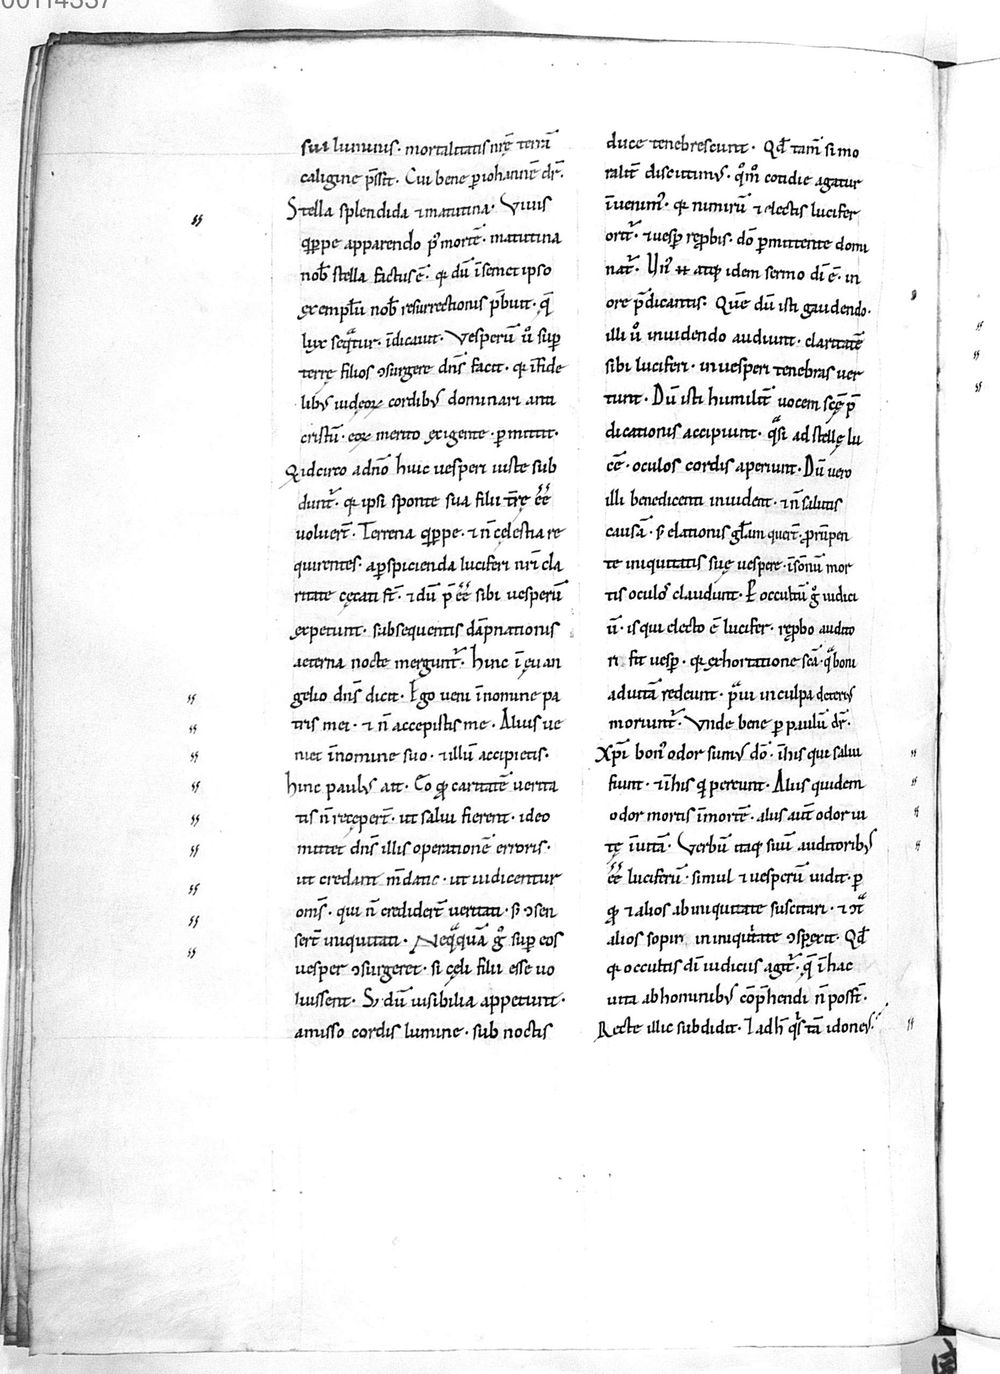 00114337
sua luminis· mortalitatis nr̄ę terrā
caligine p̄ssit· Cui bene p iohannē dr̄·
Stella splendida ⁊ matutina· Vivis
qppe apparendo p᷒ mortē· matutina
nob̄ stella factus ē· qꝛ dū īsemet ipso
exemplū nob̄ resurrectionis p̄buit· q̄
lux seqͣtur· īdicavit· Vesperū ů sup
terrę filios ɔsurgere dn̄s facit· qꝛ īfide
libꝰ iudęoꝝ cordibꝰ dominari anti
cristū· eoꝝ merito exigente· pmittit·
Qid circo adn̄o huic vesperi iuste sub
dunt᷑· qꝛ ipsi sponte sua filii tr̄ę ēē
voluer̄t· Terrena qppe· ⁊ n̄ cęlestia re
quirentes· a pspicienda luciferi nr̄i cla
ritate cęcati st̄· ⁊ dū p̄ēē sibi vesperū
expetunt· subsequentis dāpnationis
aeterna nocte mergunt᷑· hinc ī evan
gelio dn̄s dicit· Ego veni īnomine pa
tris mei· ⁊ n̄ accepistis me· Alius ve
niet īnomine suo· ⁊ illū accipietis·
hinc paulꝰ ait· Eo qđ caritatē verita
tis n̄ recęper̄t· ut salvi fierent· ideo
mittet dn̄s illis operationē erroris·
ut credant m̄datio· ut iudicentur
om̄s· qui n̄ credider̄t veritati· s̄ ɔsen
ser̄t iniquitati· Neqͣquā gͦ sup eos
vesper ɔsurgeret· si cęli filii esse vo
luissent· S; dū visibilia appetunt·
amisso cordis lumine· sub noctis
duce tenebrescunt· Qđ tam̄ si mo
ralit̄ discutimꝰ· qͦm̄ cotidie agatur
īvenimꝰ· qꝛ nimirū ⁊ electis lucifer
orit᷑· ⁊ vesp repbis· do̅ pmittente domi
nat᷑· Un᷒ atq idem sermo dī ē· in
ore p̄dicantis· Quē dū isti gaudendo·
illi ů invidendo audiunt· claritatē
sibi luciferi· in vesperi tenebras ver
tunt· Dū isti humilit̄ vocem scę̄ p̄
dicationis accipiunt· qͣsi ad stellę lu
cē· oculos cordis aperiunt· Dū vero
illi benedicenti invident· ⁊ n̄ salutis
causā· s̄ elationis gl̄am quer̄t· prūpen
te iniquitatis suę vespere· īsōnū mor
tis oculos claudunt· Et occultū gͦ iudici
ū· is qui electo ē lucifer· repbo audito
ri fit vesp· qꝛ exhortatione scā· qͣ boni
ad vitā redeunt· p̄vi in culpa deteriꝰ
moriunt᷑· Unde bene p paulū dr̄·
Xp̄i bonꝰ odor sumꝰ do̅· īhis qui salvi
fiunt· ⁊ īhis q pereunt· Aliis quidem
odor mortis īmortē· aliis aut̄ odor vi
tę īvitā· Verbū itaq suū auditoribꝰ
ēē luciferū· simul ⁊ vesperū vidit· p
qđ ⁊ alios ab iniquitate suscitari· ⁊
alios sopiri in iniquitate ɔspexit· Qđ
qꝛ occultis dī iudiciis agit᷑· q̄ ī hac
vita ab hominibꝰ cōp̄hendi n̄ posst̄·
Recte illic subdidit· ⁊ ad h̄ qͥs tā idoneꝰ·